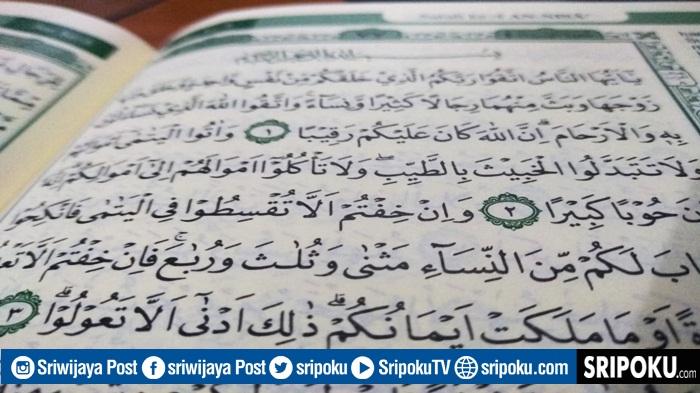 يٰٓاَيُّهَا النَّاسُ اتَّقُوْا رَبَّكُمُ الَّذِيْ خَلَقَكُمْ مِّنْ نَّفْسٍ
زَوْجَهَا وَبَثَّ مِنْهُمَا رِجَالًا كَثِيْرًا وَّنِسَاۤءً ۚ وَاتَّقُوا اللّٰهَ الَّذِيْ
بِهٖ وَالْاَرْحَامَ ۗ اِنَّ اللّٰهَ كَانَ عَلَيْكُمْ رَقِيْبًا ١ وَاٰتُوا الْيَتٰمٰىٓ
وَلَا تَتَبَدَّلُوا الْخَبِيْثَ بِالطَّيِّبِ ۖ وَلَا تَأْكُلُوْٓا اَمْوَالَهُمْ اِلٰٓى اَمْوَالِكُمْ
حُوْبًا كَبِيْرًا ٢ وَاِنْ خِفْتُمْ اَلَّا تُقْسِطُوْا فِى الْيَتٰمٰى فَانْكِحُوْا
اَبَ لَكُمْ مِّنَ النِّسَاۤءِ مَثْنٰى وَثُلٰثَ وَرُبٰعَ ۚ فَاِنْ خِفْتُمْ اَلَّا
اَوْ مَا مَلَكَتْ اَيْمَانُكُمْ ۗ ذٰلِكَ اَدْنٰٓى اَلَّا تَعُوْلُوْا ۗ ٣
Sriwijaya Post sriwijaya Post sripoku SripokuTV sripoku.com SRIPOKU.com